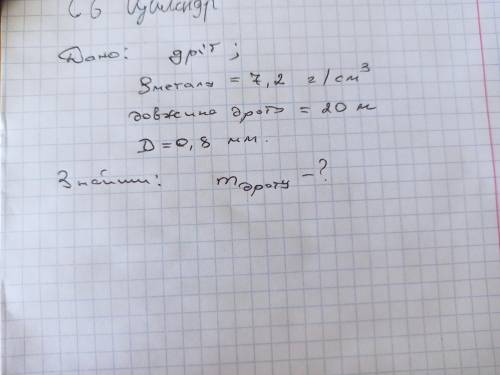 С6 Циліндр
Дано: дріт;
ρметала = 7,2 г/см³
довжина дроту = 20 м
D = 0,8 мм.
Знайти: mдроту - ?